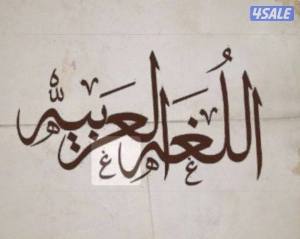 4SALE
اللغة العربية